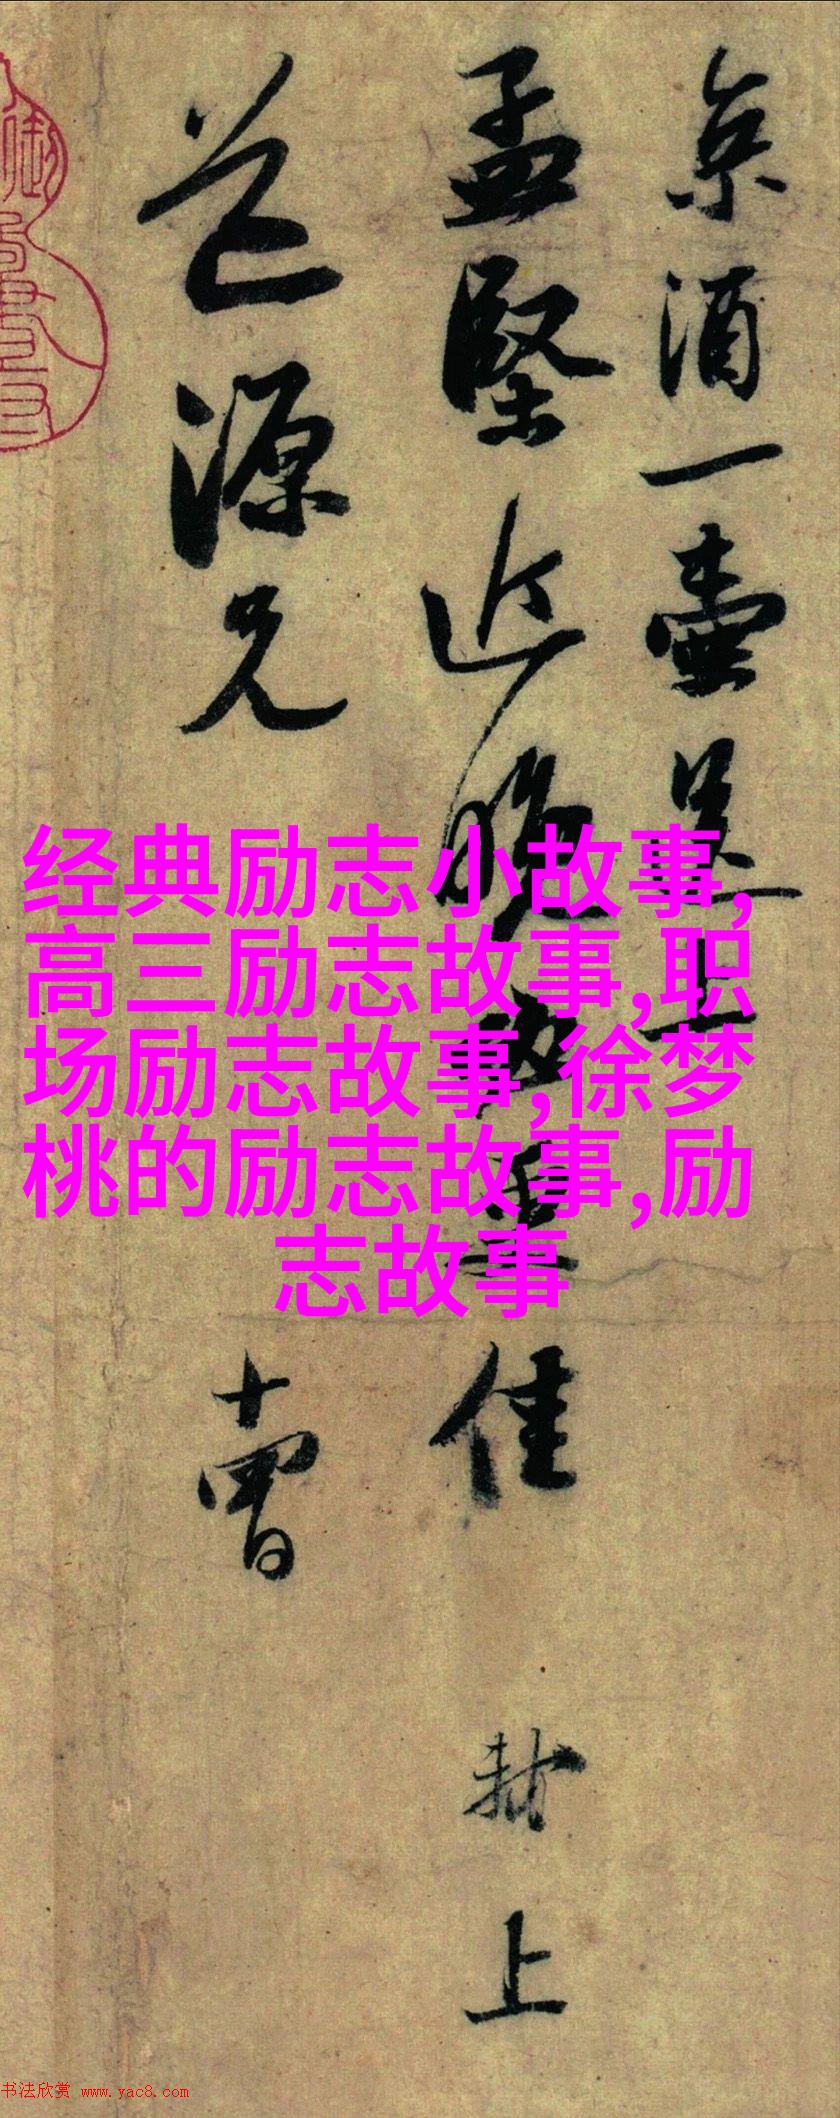 京酒一壷送上
孟堅近晚佳
上
道源兄
经典励志小故事,
高三励志故事,职
场励志故事,徐梦
桃的励志故事,励
志故事
书法欣赏 www.yac8.com